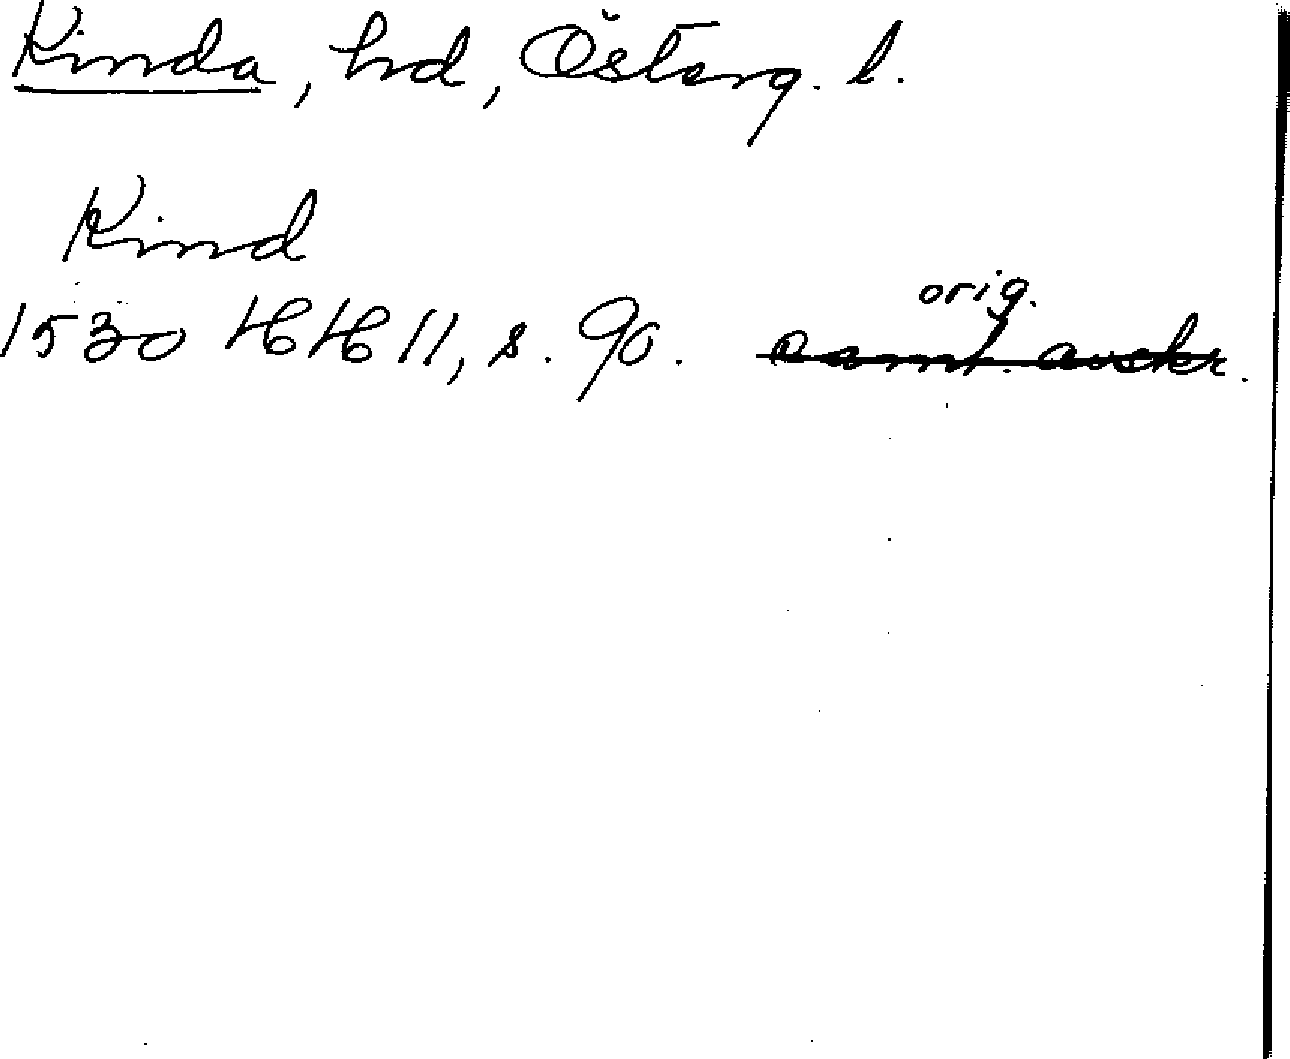 Kinda, hd, Österg. l.
Kind
orig.
1530 HH 11, s. 90. samt. avskr.